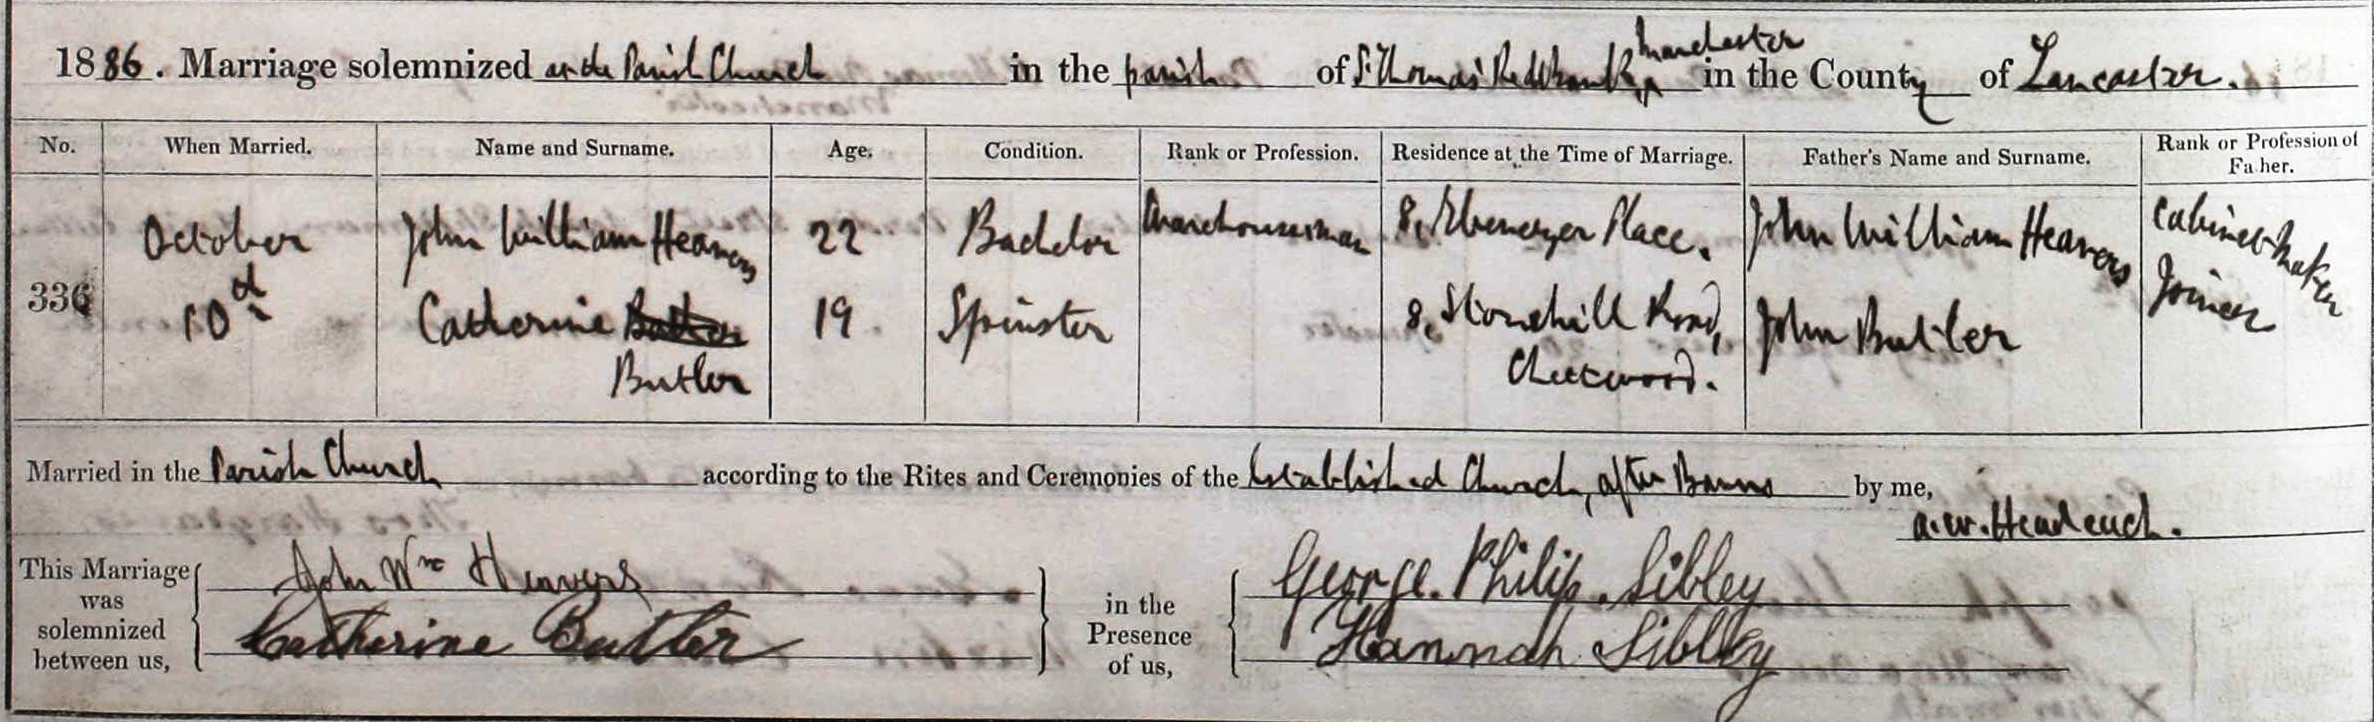 Manchester
1886. Marriage solemnized at the Parish Church in the parish of St Thomas' Red Bank, in the County of Lancaster.
No. When Married. Name and Surname. Age. Condition. Rank or Profession. Residence at the Time of Marriage. Father's Name and Surname. Rank or Profession of
Fa her.
October John William Heavers 22 Bachelor Warehouseman 8, Ebenezer Place. John William Heavers Cabinet Maker
336 10th Catherine Butler 19 Spinster 8, Stonehill Road, John Butler Joiner
Butler Cheetwood.
Married in the Parish Church according to the Rites and Ceremonies of the Established Church, after Banns by me,
A. W. Headeuch.
This Marriage
was
solemnized
between us,
John Wm Heavers
Catherine Butler
in the
Presence
of us,
George Philip Sibley
Hannah Sibley